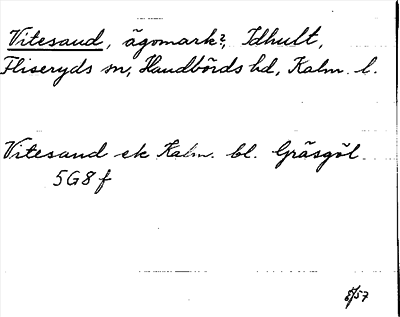 Vitesand, ägomark?, Idhult,
Fliseryds sn, Handbörds hd, Kalm. l.
Vitesand ek Kalm. bl. Gräsgöl
5G8f
8/57